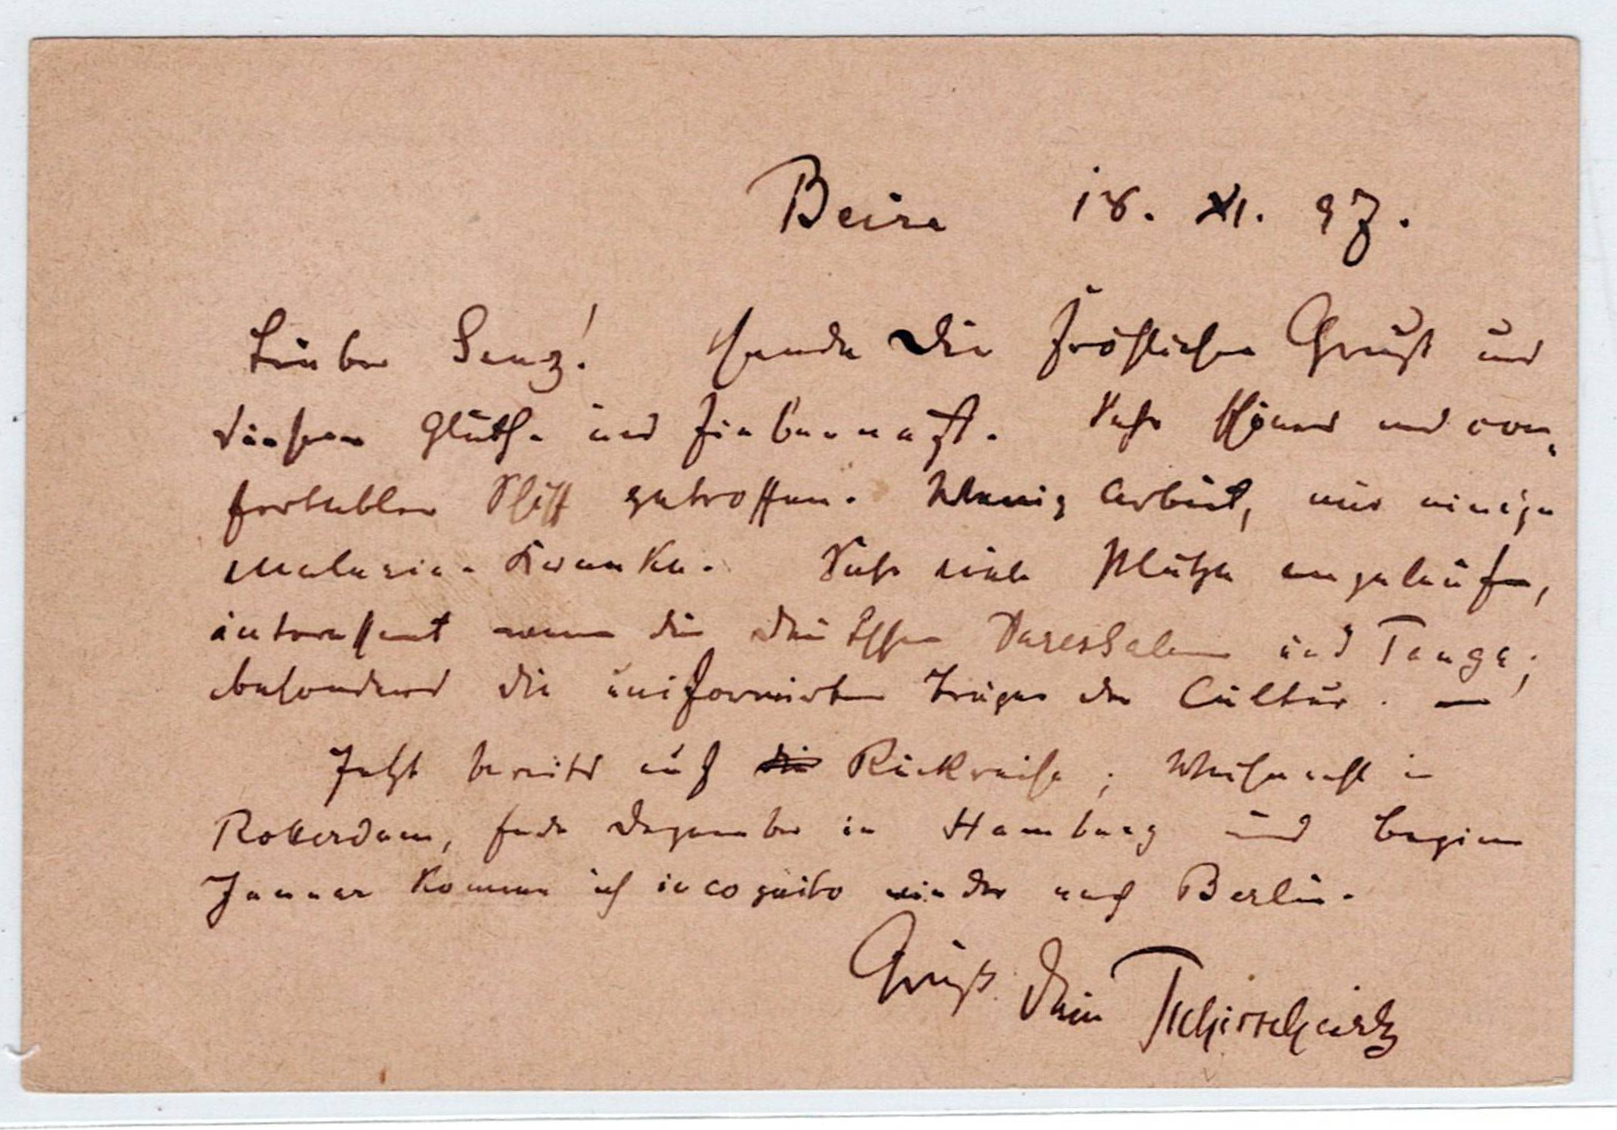 Beira 18. XI. 97.
Lieber Ganz! Sende Dir fröhlichen Gruß und
diesem Gluth- und Fiebernest. Sehr schönes und com-
fortables Schiff getroffen. Wenig Arbeit, nur einige
Malaria-Kranke. Sehr viele Plätze angelaufen,
interessant waren die deutschen Daressalam und Tanga,
besonders die uniformirten Träger der Cultur. —
Jetzt bereits auf Rückreise; Weihnacht in
Rotterdam, Ende Dezember in Hamburg und Beginn
Januar komme ich incognito wieder nach Berlin.
Gruß Dein